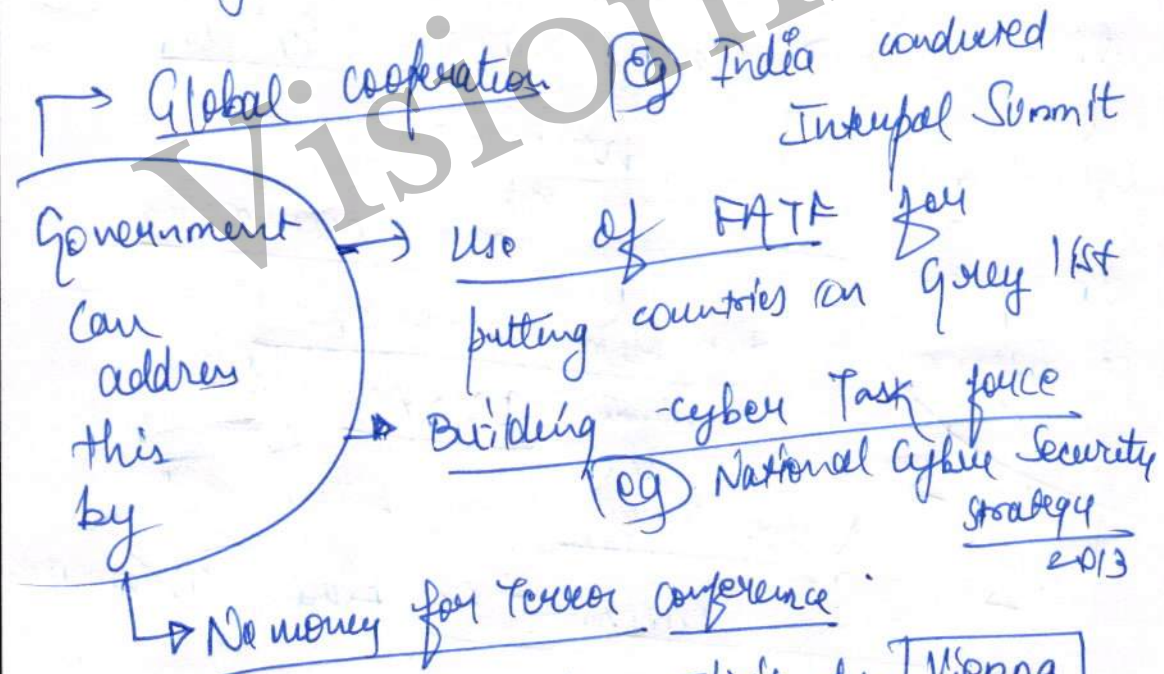 Global cooperation (Eg) India conducted
Interpol Summit
Government
can
address
this
by
Use of FATF for
putting countries on Grey list
Building -cyber Task force
(eg) National Cyber Security
Strategy
2013
No money for Terror conference
Vienna
Vision